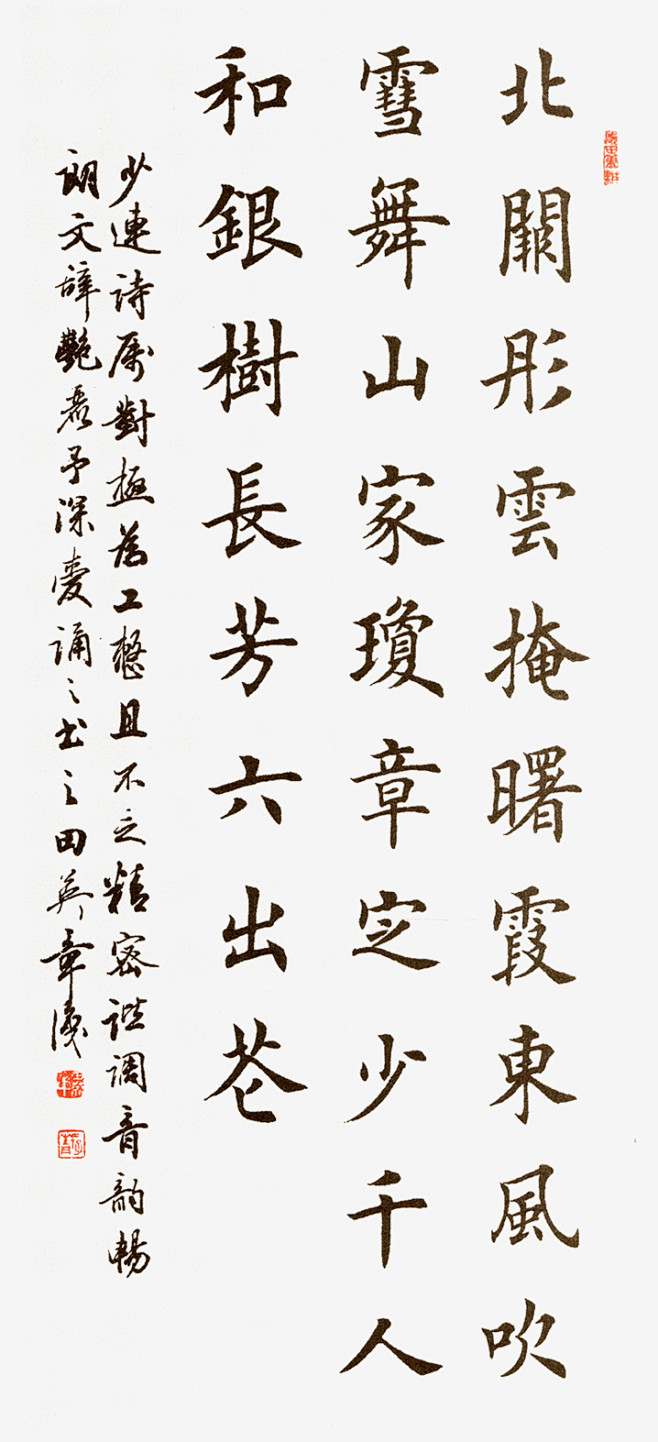 北闕彤雲掩曙霞東風吹
雪舞山家瓊章定少千人
和銀樹長芳六出花
少連詩属對極為工整且不乏精密諧調音韵暢
朗文辞艷麗予深愛誦之書之田英章識